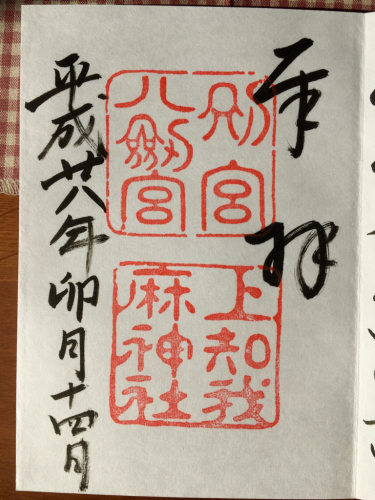 奉拝
別宮
八劔宮
上知我
麻神社
平成廿八年卯月十四日